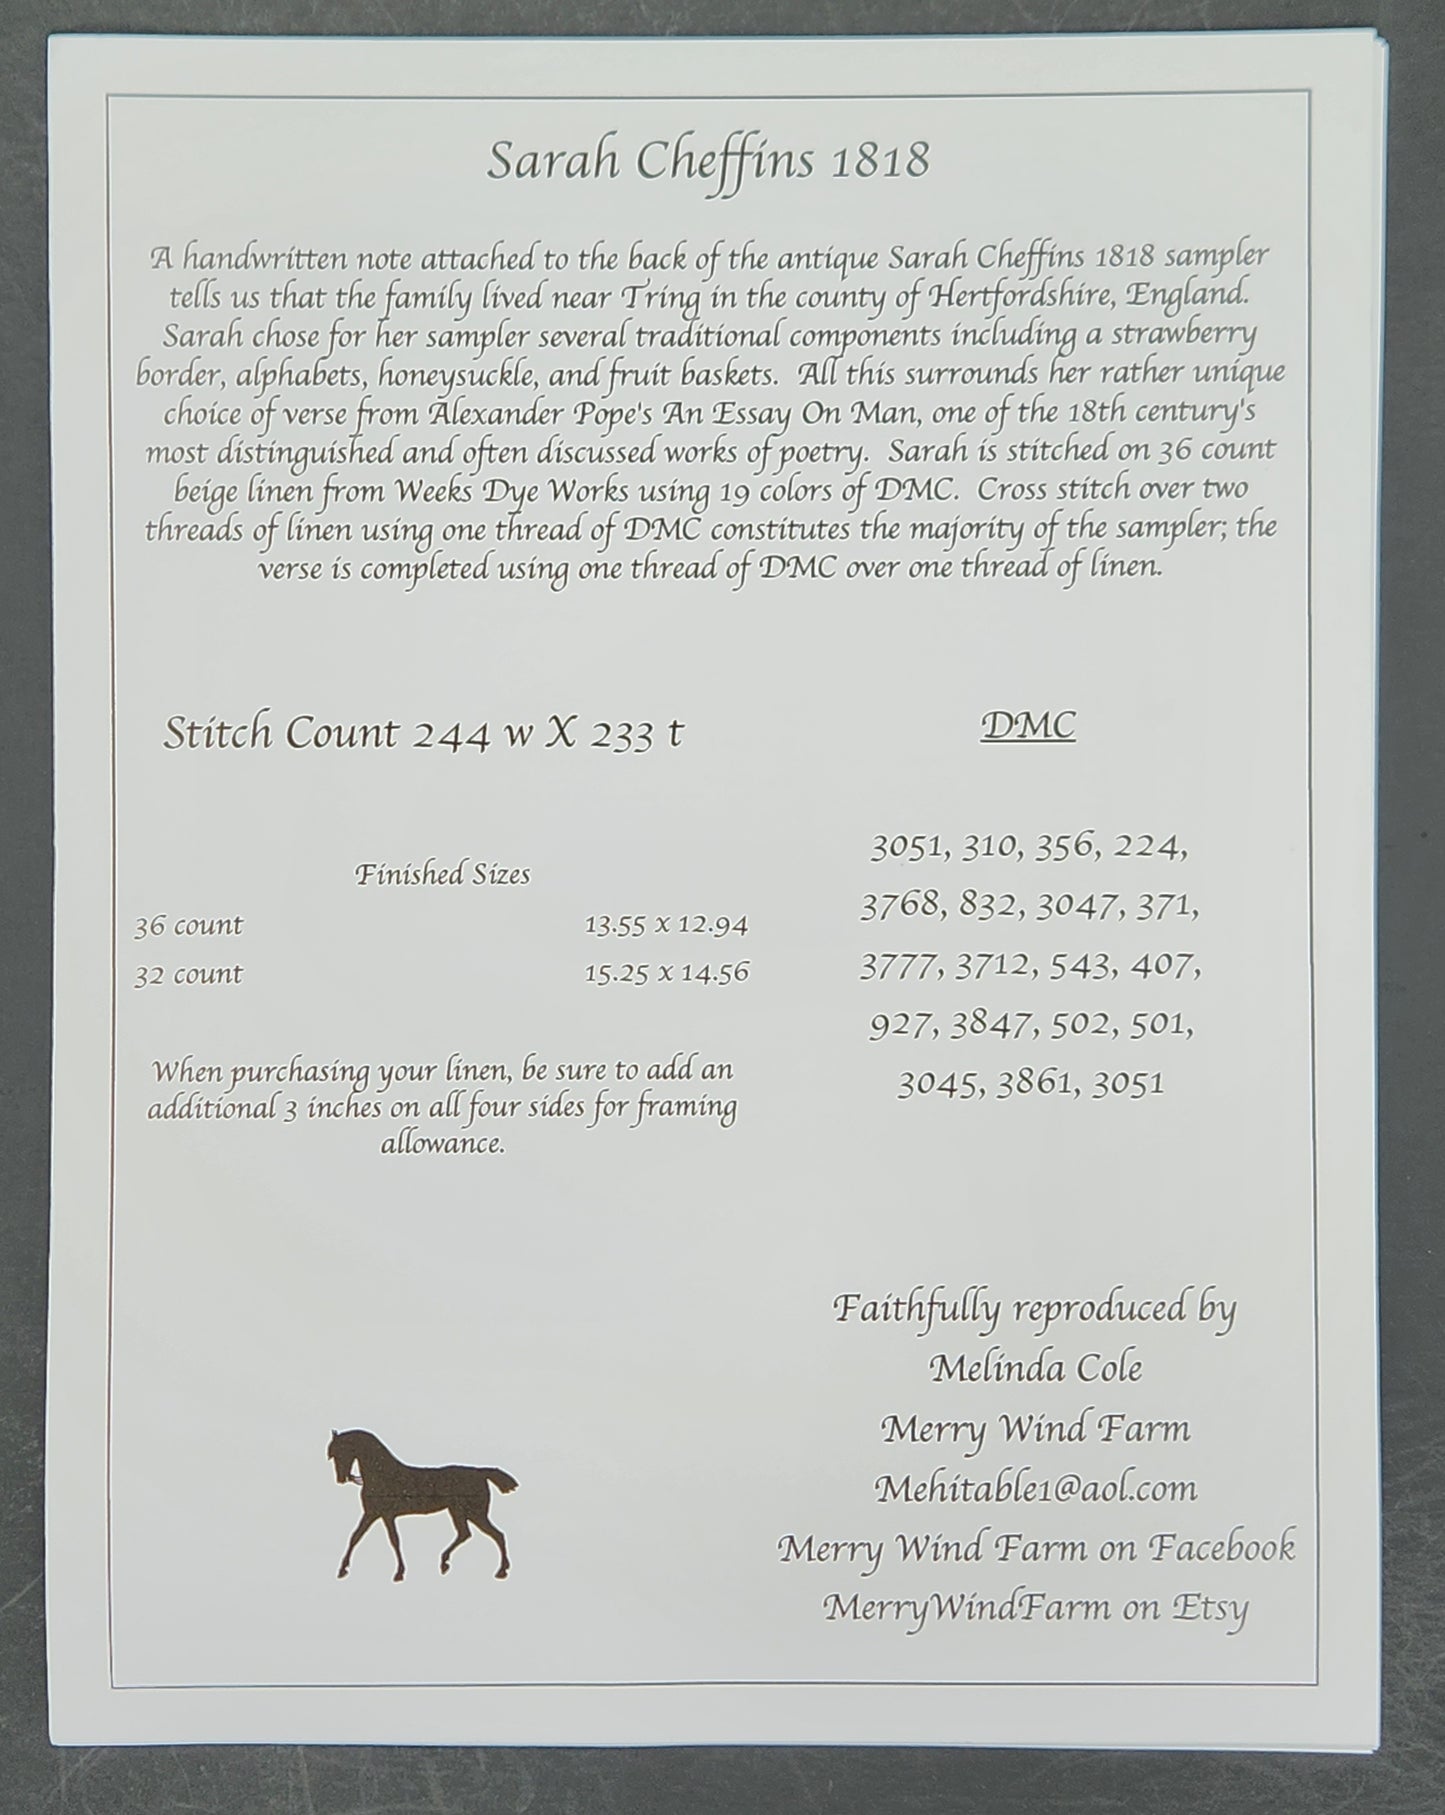 Sarah Cheffins 1818
A handwritten note attached to the back of the antique Sarah Cheffins 1818 sampler
tells us that the family lived near Tring in the county of Hertfordshire, England.
Sarah chose for her sampler several traditional components including a strawberry
border, alphabets, honeysuckle, and fruit baskets.  All this surrounds her rather unique
choice of verse from Alexander Pope's An Essay On Man, one of the 18th century's
most distinguished and often discussed works of poetry.  Sarah is stitched on 36 count
beige linen from Weeks Dye Works using 19 colors of DMC.  Cross stitch over two
threads of linen using one thread of DMC constitutes the majority of the sampler; the
verse is completed using one thread of DMC over one thread of linen.
Stitch Count 244 w X 233 t
Finished Sizes
36 count 13.55 x 12.94
32 count 15.25 x 14.56
When purchasing your linen, be sure to add an
additional 3 inches on all four sides for framing
allowance.
DMC
3051, 310, 356, 224,
3768, 832, 3047, 371,
3777, 3712, 543, 407,
927, 3847, 502, 501,
3045, 3861, 3051
Faithfully reproduced by
Melinda Cole
Merry Wind Farm
Mehitable1@aol.com
Merry Wind Farm on Facebook
MerryWindFarm on Etsy